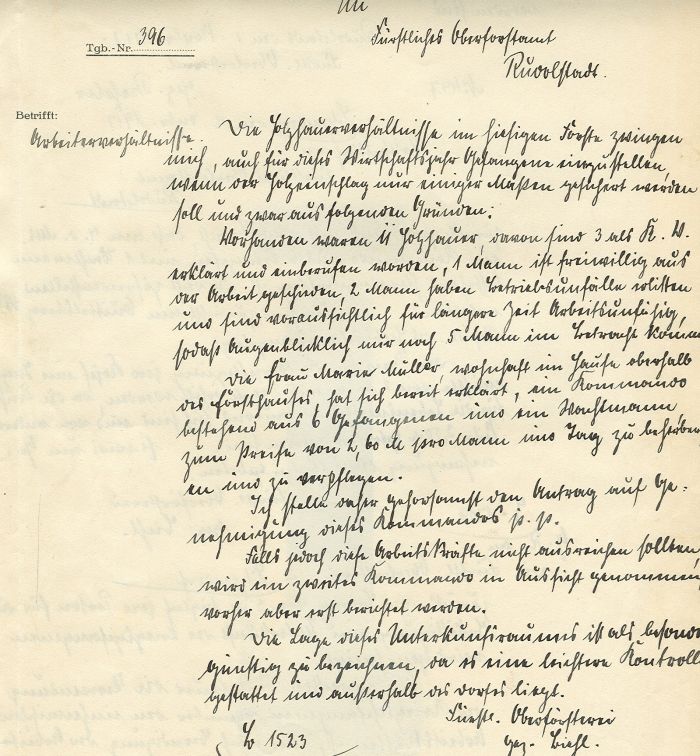 An
Tgb.-Nr. 396
Fürstliches Oberforstamt
Rudolstadt.
Betrifft:
Arbeiterverhältnisse.
Die Holzhauerverhältnisse im hiesigen Forste zwingen
mich, auch für dieses Wirtschaftsjahr Gefangene einzustellen,
wenn der Holzeinschlag nur einiger Maßen gesichert werden
soll und zwar aus folgenden Gründen:
Vorhanden waren 11 Holzhauer, davon sind 3 als K. V.
erklärt und einberufen worden, 1 Mann ist freiwillig aus
der Arbeit geschieden, 2 Mann haben Betriebsunfälle erlitten
und sind voraussichtlich für längere Zeit Arbeitsunfähig,
sodaß Augenblicklich nur noch 5 Mann im Betracht komme
Die Frau Marie Müller wohnhaft im Hause oberhalb
des Forsthauses, hat sich bereit erklärt, ein Kommando
bestehend aus 6 Gefangenen und ein Wachtmann,
zum Preise von 2,60 M pro Mann und Tag zu beherber
en und zu verpflegen.
Ich stelle daher gehorsamst den Antrag auf Ge-
nehmigung dieses Kommandos p. p.
Falls jedoch diese Arbeitskräfte nicht ausreichen sollten,
wird ein zweites Kommando in Aussicht genommen,
vorher aber erst berichtet werden.
Die Lage dieses Unterkunftraumes ist als besonde
günstig zu bezeichnen, da es eine leichtere Kontroll
gestattet und ausserhalb des Dorfes liegt.
Fürstl. Oberförsterei
1523
gez. Biehl.